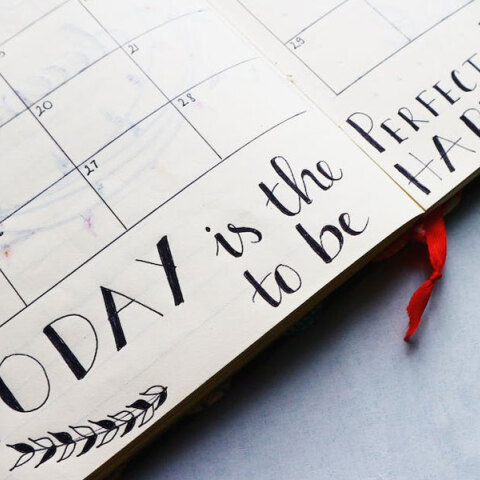 21
29
20
28
27
ODAY is the PERFECT
to be HAP